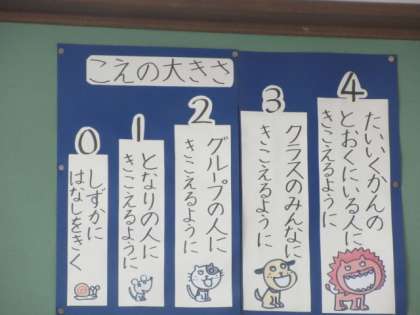 こえの大きさ
0
しずかに
はなしをきく
1
となりの人に
きこえるように
2
グループの人に
きこえるように
3
クラスのみんなに
きこえるように
4
たいいくかんの
とおくにいる人に
きこえるように